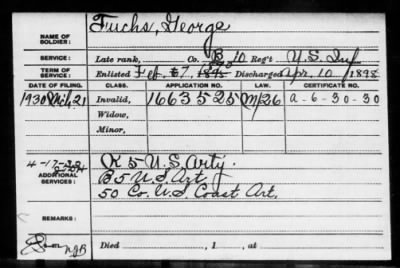 Fuchs, George
NAME OF SOLDIER:
SERVICE: Late rank, Co. B 10 Reg't U.S. Inf
TERM OF SERVICE: Enlisted 7, 1895 Discharged Apr. 10 / 1898
DATE OF FILING. CLASS. APPLICATION NO. LAW. CERTIFICATE NO.
1930 21 Invalid, 1663525 M/26 A-6-30-30
Widow,
Minor,
4-17-
ADDITIONAL SERVICES:
K 5 U.S. Arty.
B 5 U.S. Art.
50 Co. U.S. Coast Art.
REMARKS:
Died , 1 , at